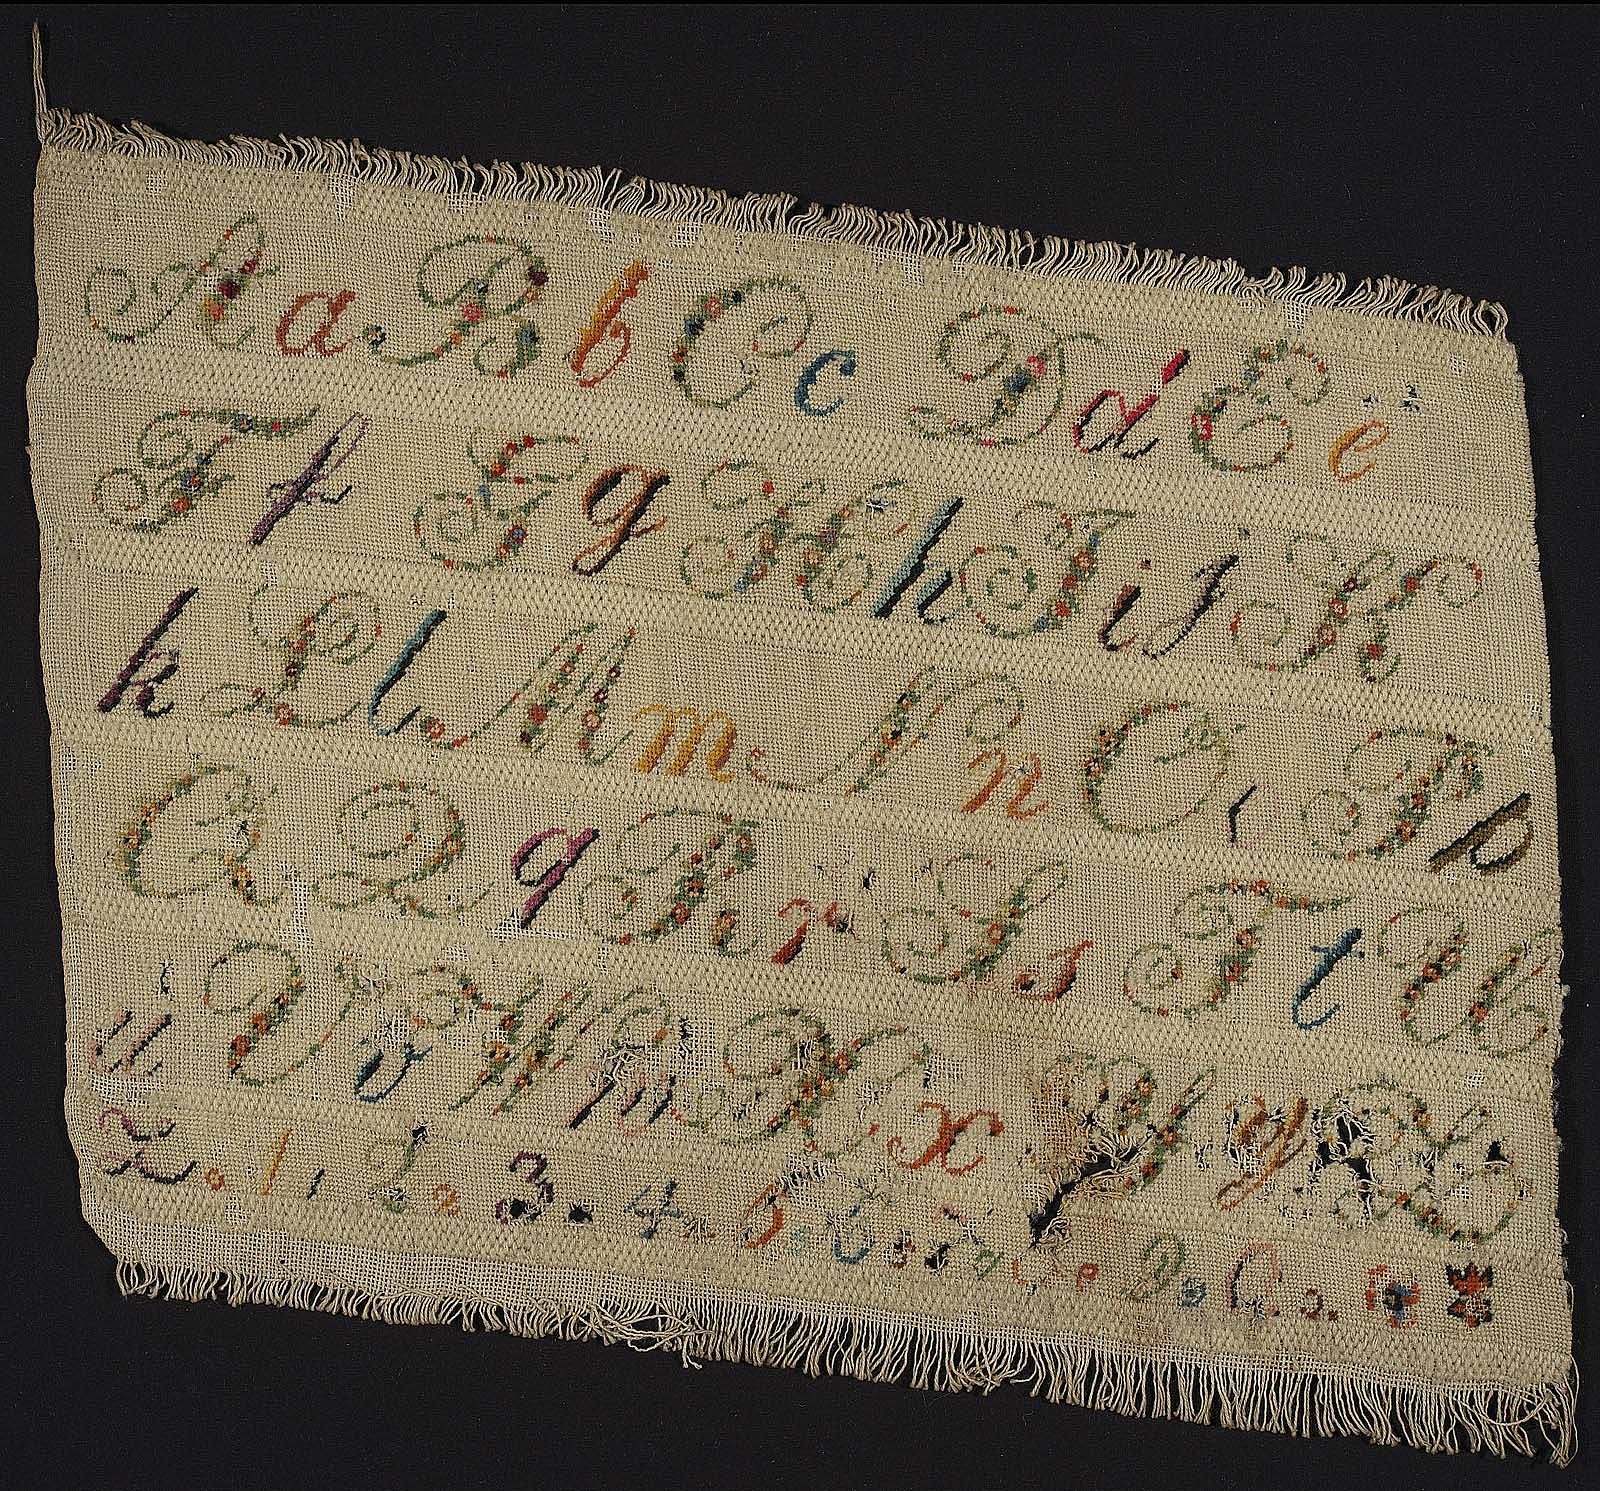 A a B b C c D d E e
F f G g H h I i j K
k L l M m N n O P p
Q Q q R r S s T t U
u V v W w X x Y y Z
z . 1 . 2 . 3 . 4 . 5 . 6 . 7 . 8 . 9 . 0 .